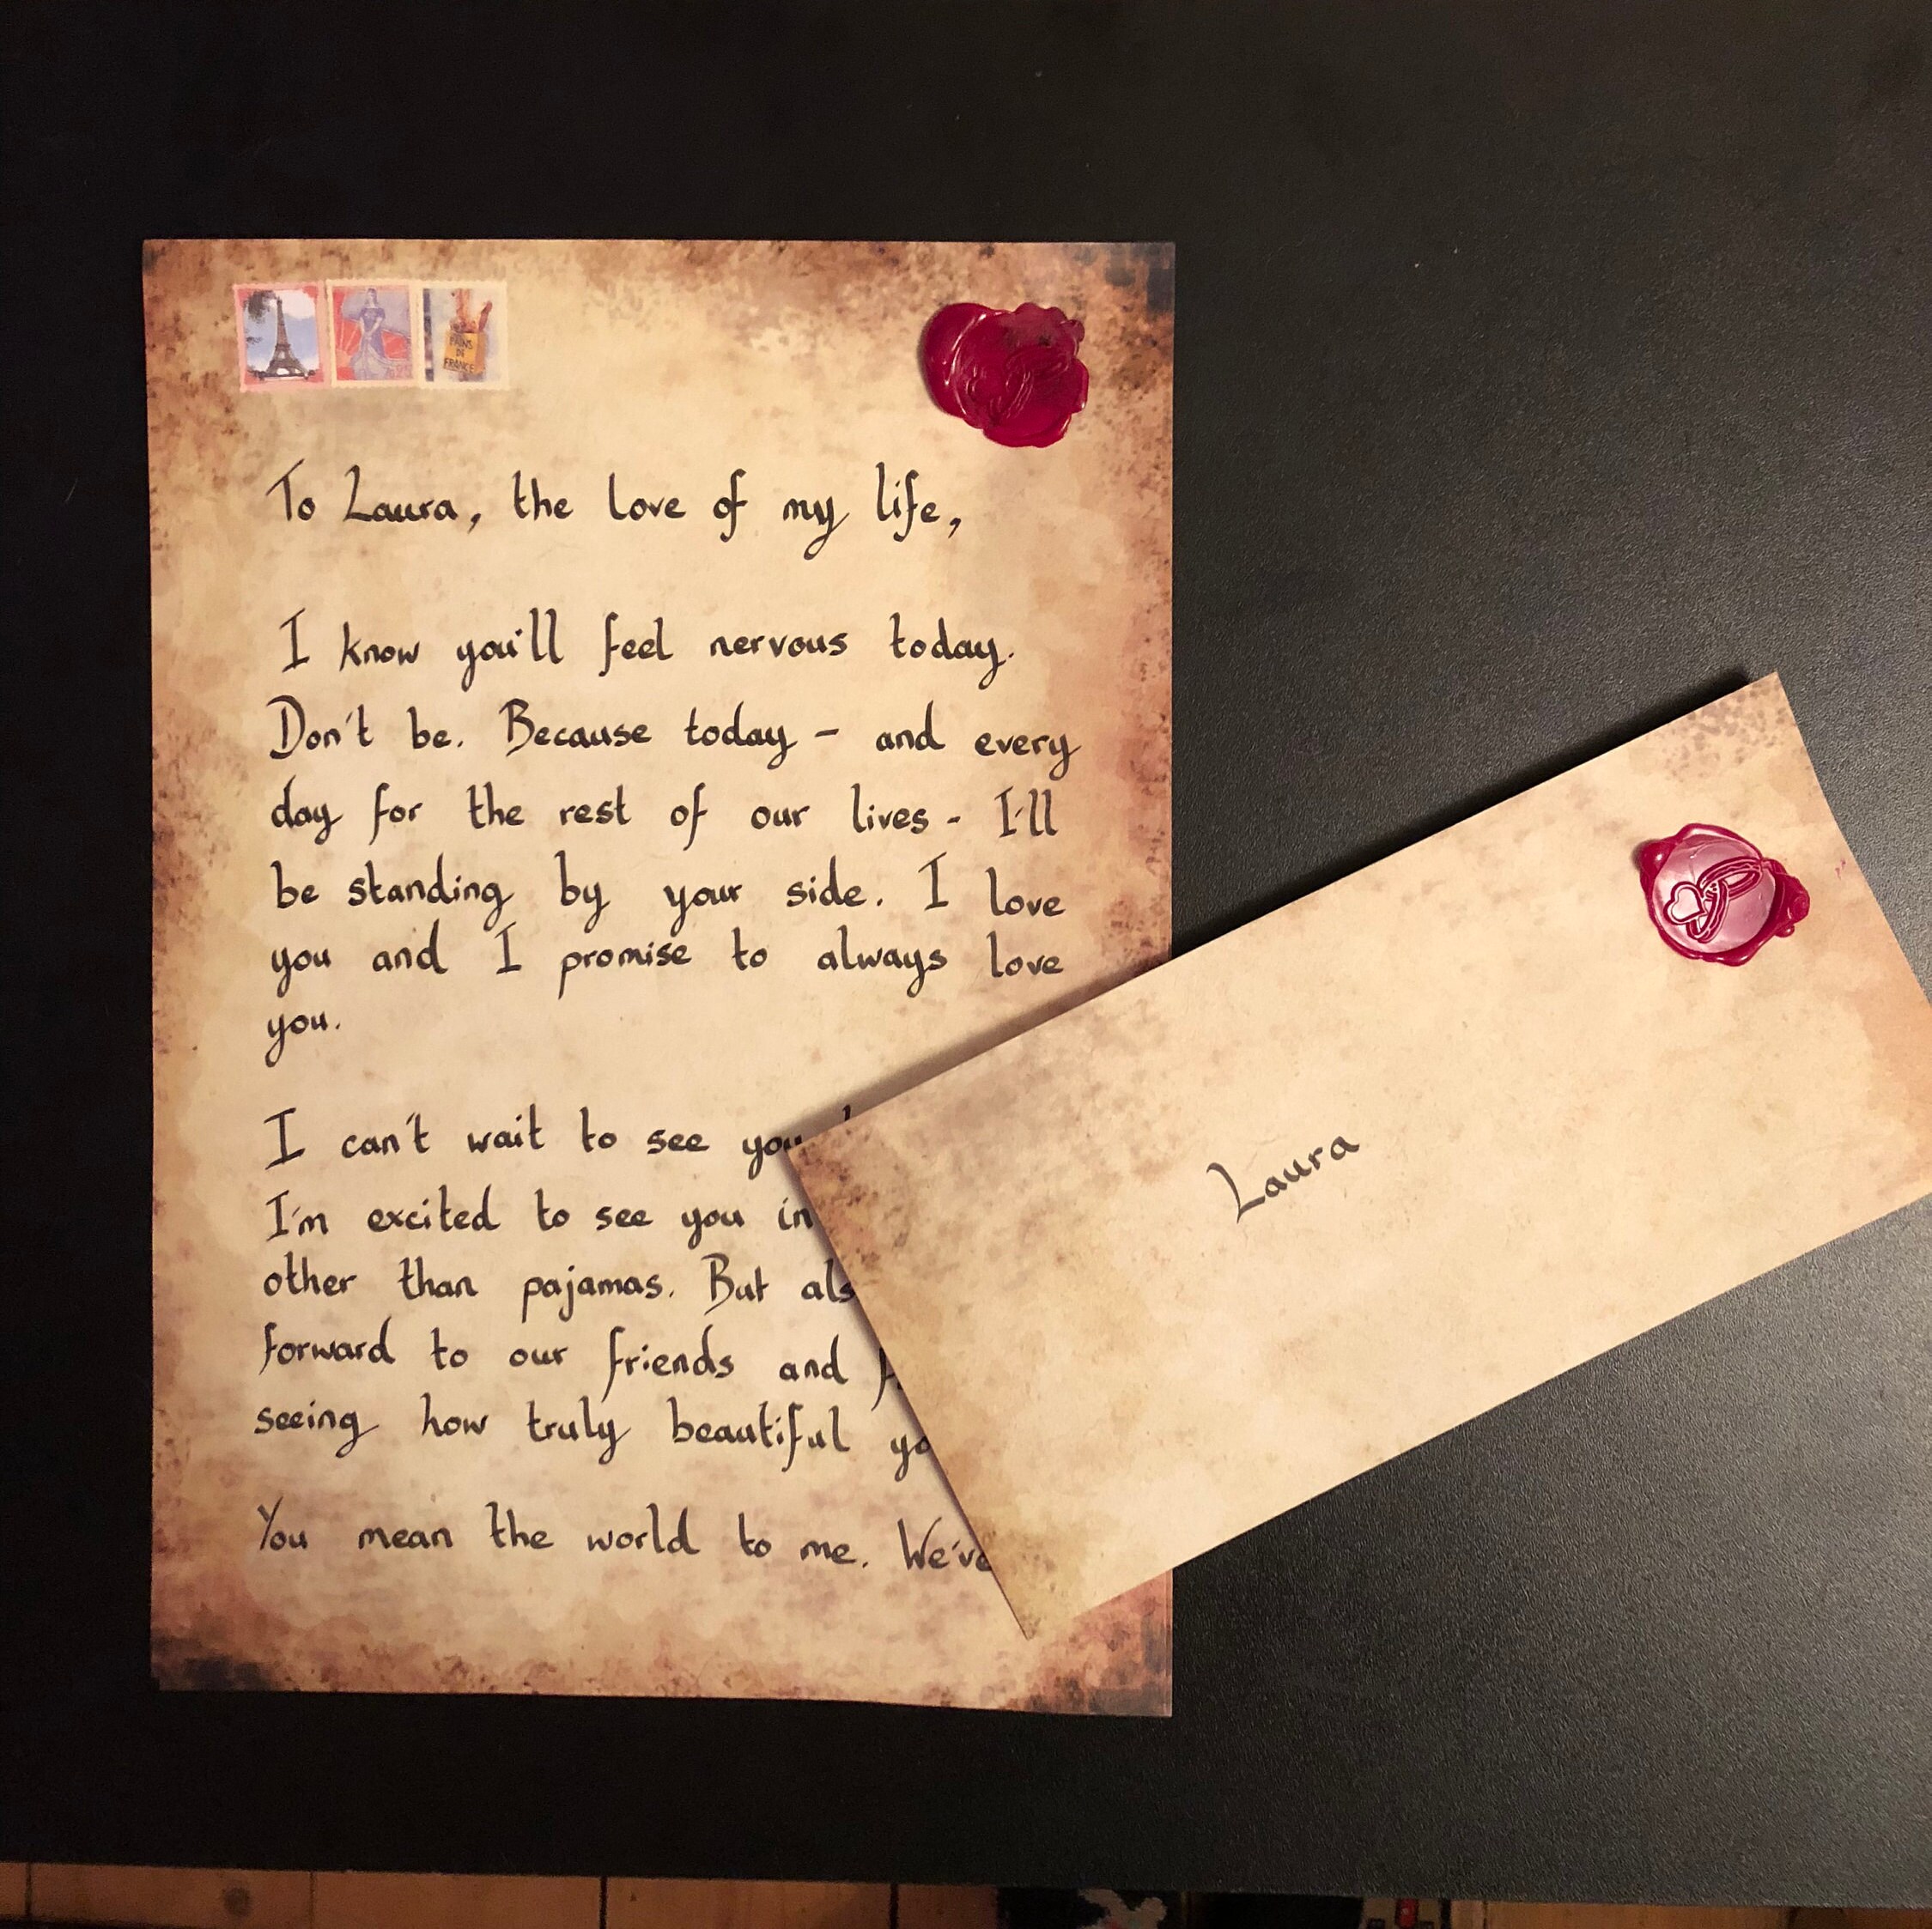 PAINS
DE
FRANCE
To Laura, the love of my life,
I know you'll feel nervous today.
Don't be. Because today - and every
day for the rest of our lives - I'll
be standing by your side. I love
you and I promise to always love
you.
I can't wait to see you
I'm excited to see you in
other than pajamas. But
forward to our friends and
seeing how truly beautiful
You mean the world to me. We've
Laura